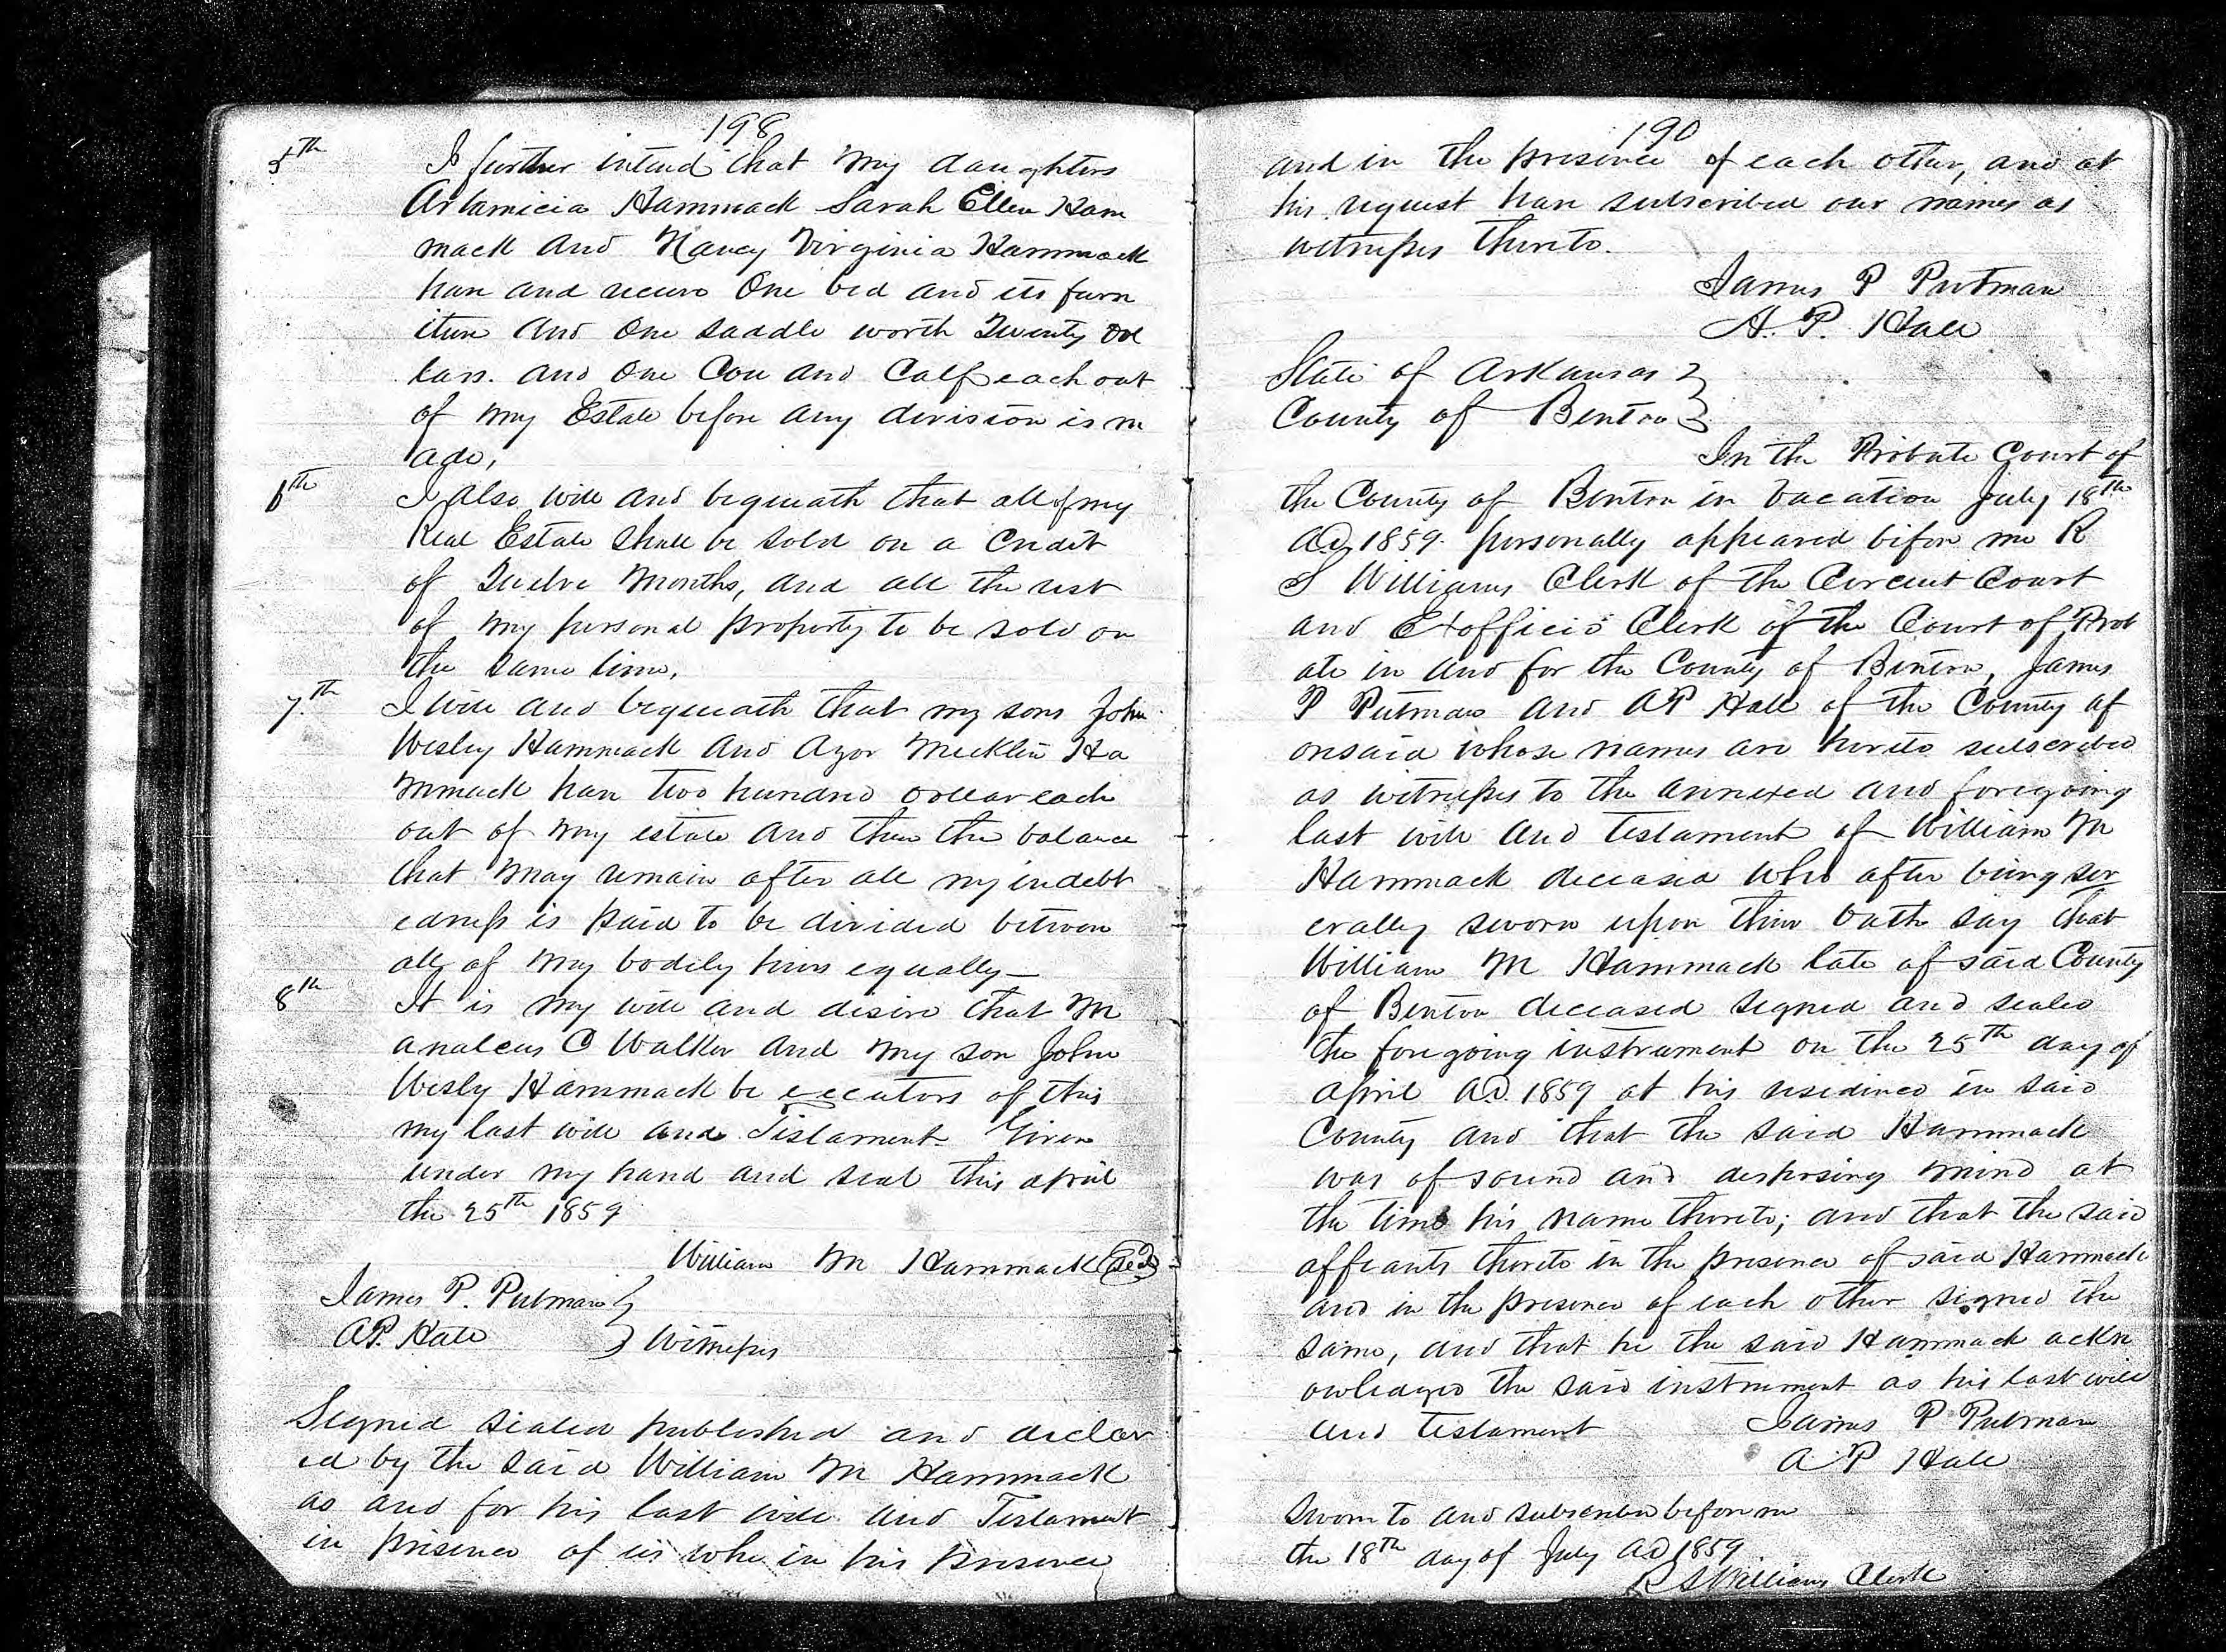 198
5th I further intend that my daughters
Artamicia Hammack Sarah Ellen Ham
mack and Nancy Virginia Hammack
have and receive One bed and its furn
iture and one saddle worth Twenty dol
lars. and One Cow and Calf each out
of my Estate before any division is m
ade,
6th I also will and bequeath that all of my
Real Estate shall be sold on a Credit
of Twelve Months, and all the rest
of my personal property to be sold on
the same time,
7th I will and bequeath that my sons John
Wesley Hammack and Azor Mecklin Ha
mmack have two hundred dollar each
out of my estate and then the balance
that may remain after all my indebt
edness is paid to be divided between
all of my bodily heirs equally—
8th It is my will and desire that M
analcus C Walker and my son John
Wesly Hammack be executors of this
my last will and Testament Given
under my hand and seal this april
the 25th 1859
William M Hammack Seal
James P. Putman
A.P. Hale } Witnesses
Signed sealed published and declar
ed by the said William M Hammack
as and for his last will and Testament
in presence of us who in his presence
190
and in the presence of each other, and at
his request have subscribed our names as
witnesses thereto.
James P Putman
A. P. Hale
State of Arkansas }
County of Benton }
In the Probate Court of
the County of Benton in vacation July 18th
A.D. 1859. personally appeared before me R
S Williams Clerk of the Circuit Court
and Exofficio Clerk of the Court of Prob
ate in and for the County of Benton, James
P Putman and A P Hale of the County af
oresaid whose names are hereto subscribed
as witnesses to the annexed and foregoing
last will and testament of William M
Hammack deceased who after being sev
erally sworn upon their oath say that
William M Hammack late of said County
of Benton deceased signed and sealed
the foregoing instrument on the 25th day of
April A.D. 1859 at his residence in said
County and that the said Hammack
was of sound and disposing mind at
the time his name thereto; and that the said
affiants thereto in the presence of said Hammack
and in the presence of each other signed the
same, and that he the said Hammack ackn
owledged the said instrument as his last will
and testament James P Putman
A P Hale
Sworn to and subscribed before me
the 18th day of July A.D. 1859
R S Williams Clerk